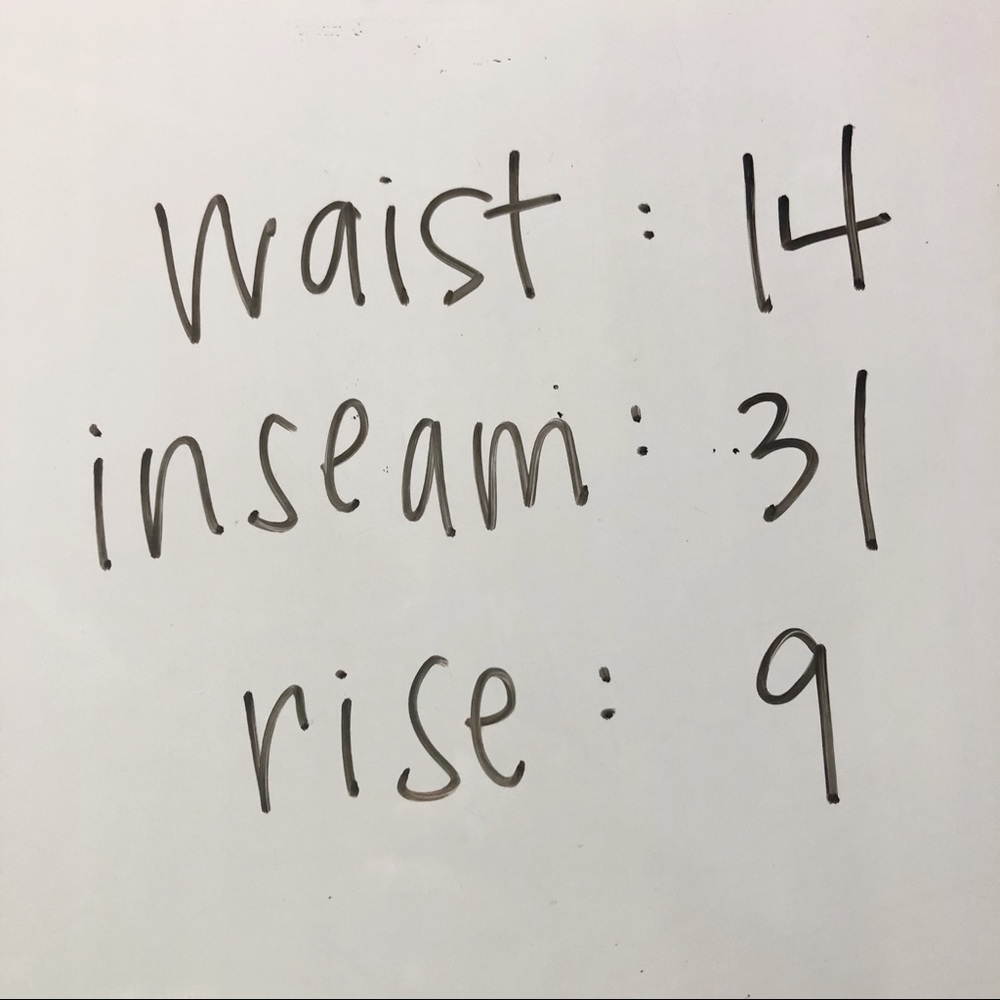 waist : 14
inseam : 31
rise : 9